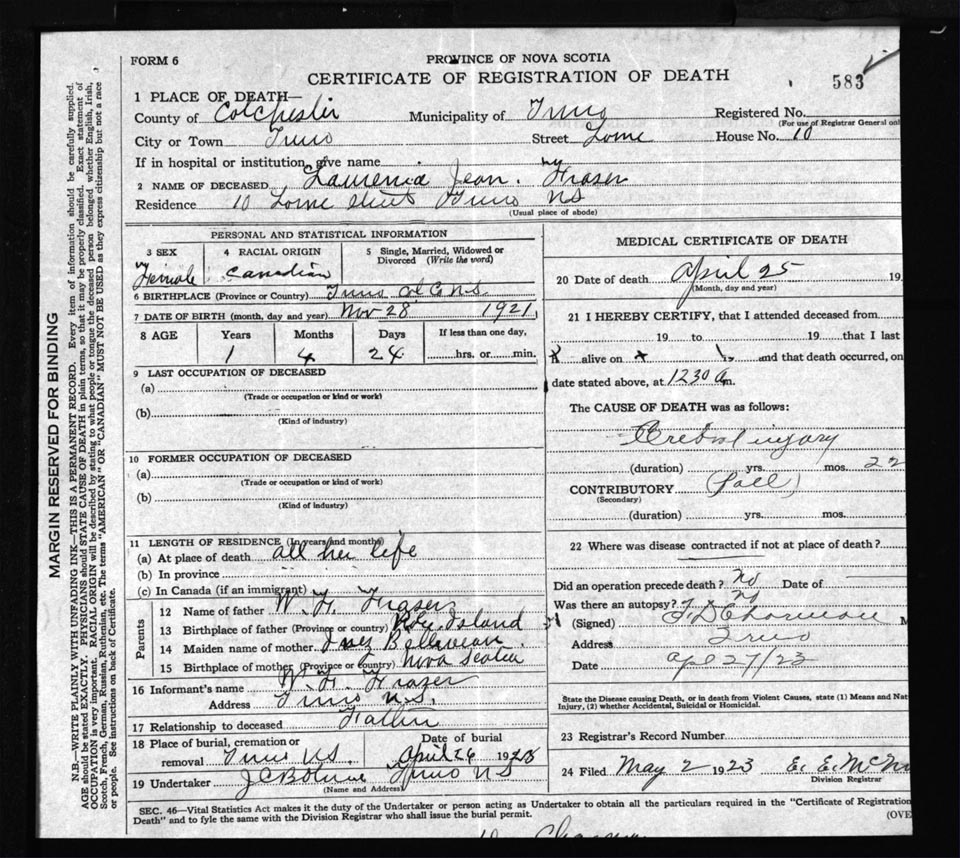 FORM 6
PROVINCE OF NOVA SCOTIA
CERTIFICATE OF REGISTRATION OF DEATH
583
1 PLACE OF DEATH—
County of Colchester Municipality of Truro Registered No.
(For use of Registrar General onl
City or Town Truro Street Lorne House No. 10
If in hospital or institution, give name
2 NAME OF DECEASED Jean. Fraser
Residence 10 Lorne Street Truro NS
(Usual place of abode)
PERSONAL AND STATISTICAL INFORMATION
3 SEX 4 RACIAL ORIGIN 5 Single, Married, Widowed or Divorced (Write the word)
Female Canadian
6 BIRTHPLACE (Province or Country) Truro Col Co NS
7 DATE OF BIRTH (month, day and year) Nov 28 1921
8 AGE Years Months Days If less than one day,
1 4 24 hrs. or min.
9 LAST OCCUPATION OF DECEASED
(a)
(Trade or occupation or kind or work)
(b)
(Kind of industry)
10 FORMER OCCUPATION OF DECEASED
(a)
(Trade or occupation or kind of work)
(b)
(Kind of industry)
11 LENGTH OF RESIDENCE (In years and months)
(a) At place of death all her life
(b) In province
(c) In Canada (if an immigrant)
Parents
12 Name of father W. H. Fraser
13 Birthplace of father (Province or country) Island
14 Maiden name of mother Inez
15 Birthplace of mother (Province or country) Nova Scotia
16 Informant's name W. H. Fraser
Address Truro N.S.
17 Relationship to deceased Father
18 Place of burial, cremation or removal Truro NS. Date of burial April 26 1923
19 Undertaker Truro NS
(Name and Address)
MEDICAL CERTIFICATE OF DEATH
20 Date of death April 25 19
(Month, day and year)
21 I HEREBY CERTIFY, that I attended deceased from
19 to 19 that I last
alive on and that death occurred, on
date stated above, at 12 30 a m.
The CAUSE OF DEATH was as follows:
Cerebral injury
(duration) yrs. mos. 22
CONTRIBUTORY (Fall)
(Secondary)
(duration) yrs. mos.
22 Where was disease contracted if not at place of death?
Did an operation precede death? no Date of
Was there an autopsy? no
(Signed)
Address Truro
Date Apl 27/23
State the Disease causing Death, or in death from Violent Causes, state (1) Means and Nat
Injury, (2) whether Accidental, Suicidal or Homicidal.
23 Registrar's Record Number
24 Filed May 2 1923 E. E. McN
Division Registrar
SEC. 46—Vital Statistics Act makes it the duty of the Undertaker or person acting as Undertaker to obtain all the particulars required in the "Certificate of Registration
Death" and to fyle the same with the Division Registrar who shall issue the burial permit.
(OVE
MARGIN RESERVED FOR BINDING
N.B.—WRITE PLAINLY WITH UNFADING INK—THIS IS A PERMANENT RECORD. Every item of information should be carefully supplied.
AGE should be stated EXACTLY. PHYSICIANS should STATE CAUSE OF DEATH in plain terms, so that it may be properly classified. Exact statement of
OCCUPATION is very important. RACIAL ORIGIN will be described by stating to what people or tongue the deceased person belonged, whether English, Irish,
Scotch, French, German, Russian, Ruthenian, etc. The terms "AMERICAN" OR "CANADIAN" MUST NOT BE USED as they express citizenship but not a race
or people. See instructions on back of Certificate.